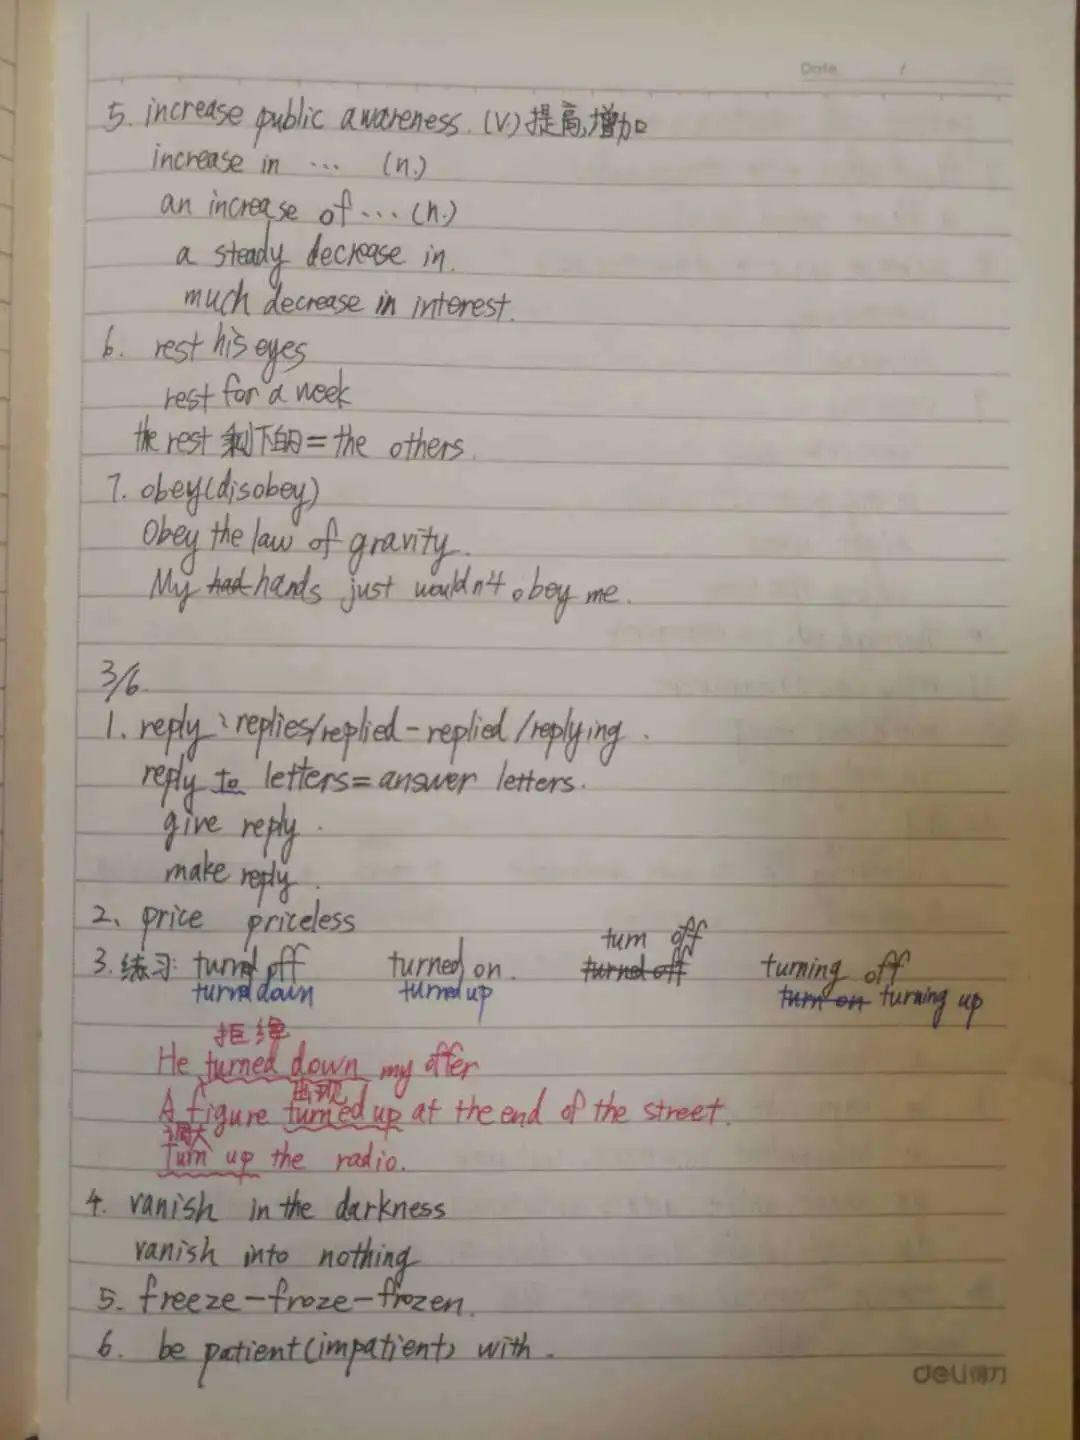 Date /
5. increase public awareness. (v.) 提高,增加
increase in ... (n.)
an increase of ... (n.)
a steady decrease in.
much decrease in interest.
6. rest his eyes
rest for a week
the rest 剩下的 = the others.
7. obey(disobey)
Obey the law of gravity.
My had hands just wouldn't obey me.
3/6.
1. reply: replies/replied-replied/replying.
reply to letters = answer letters.
give reply.
make reply.
2、price priceless
turn off
3.练习: turned off turned on. turned off turning off
turned down turned up turn on turning up
拒绝
He turned down my offer
出现
A figure turned up at the end of the street.
调大
Turn up the radio.
4. vanish in the darkness
vanish into nothing
5. freeze-froze-frozen.
6. be patient(impatient) with.
deli得力